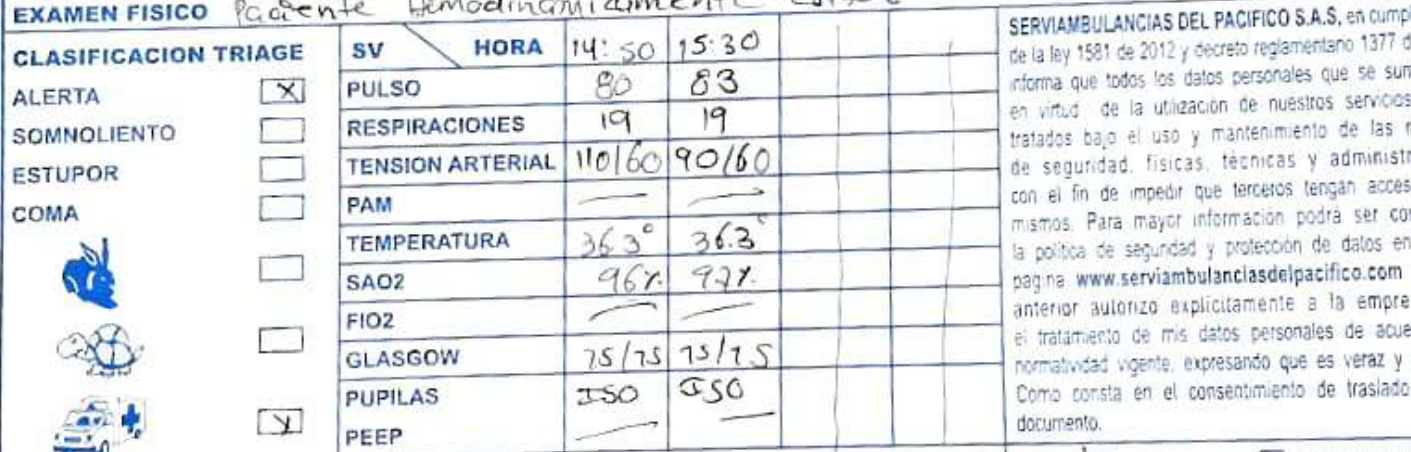 EXAMEN FISICO Paciente Hemodinamicamente
CLASIFICACION TRIAGE
ALERTA X
SOMNOLIENTO
ESTUPOR
COMA
X
SV HORA 14:50 15:30
PULSO 80 83
RESPIRACIONES 19 19
TENSION ARTERIAL 110/60 90/60
PAM — —
TEMPERATURA 36.3° 36.3°
SAO2 96% 97%
FIO2 — —
GLASGOW 15/15 15/15
PUPILAS ISO ISO
PEEP — —
SERVIAMBULANCIAS DEL PACIFICO S.A.S, en cumpl
de la ley 1581 de 2012 y decreto reglamentario 1377 d
informa que todos los datos personales que se sum
en virtud de la utilización de nuestros servicios
tratados bajo el uso y mantenimiento de las m
de seguridad, físicas, técnicas y administr
con el fin de impedir que terceros tengan acces
mismos. Para mayor información podrá ser con
la política de seguridad y protección de datos en
pagina www.serviambulanciasdelpacifico.com
anterior autorizo explicitamente a la empre
el tratamiento de mis datos personales de acue
normatividad vigente, expresando que es veraz y
Como consta en el consentimiento de traslado
documento.